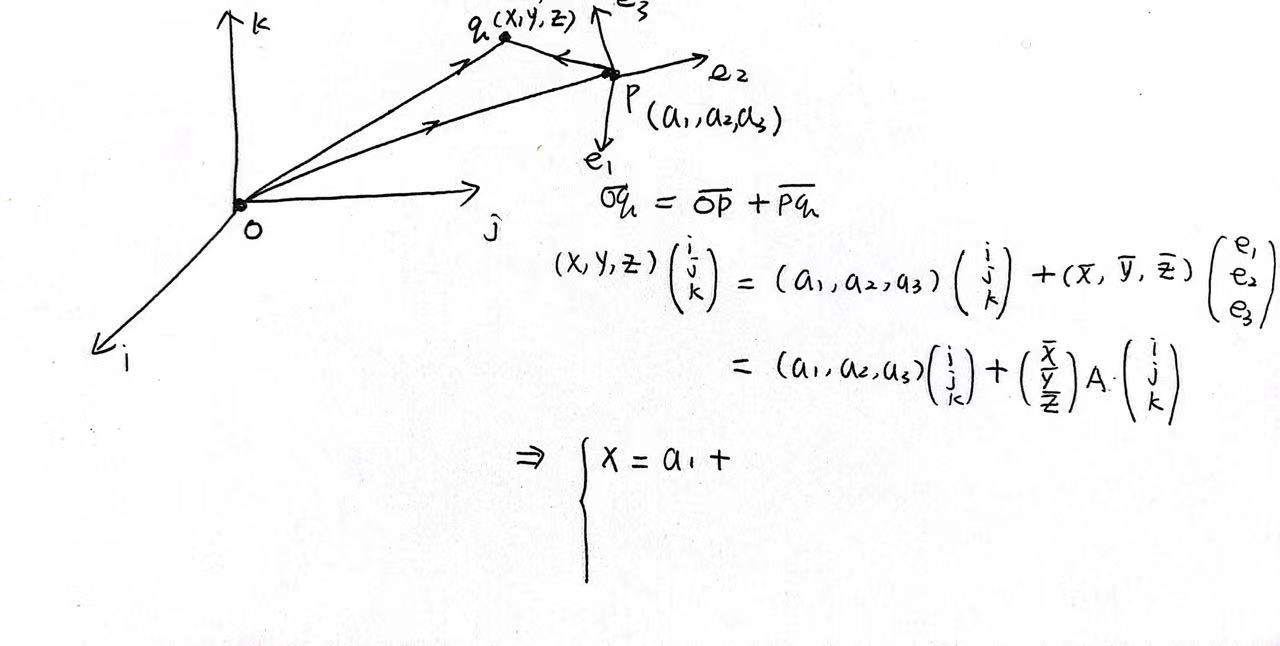 k
q (x, y, z)
e3
e2
P
(a1, a2, a3)
e1
O
j
i
Oq = OP + Pq
(x, y, z) (i j k) = (a1, a2, a3) (i j k) + (x̄, ȳ, z̄) (e1 e2 e3)
= (a1, a2, a3) (i j k) + (x̄ ȳ z̄) A · (i j k)
⇒ { x = a1 +